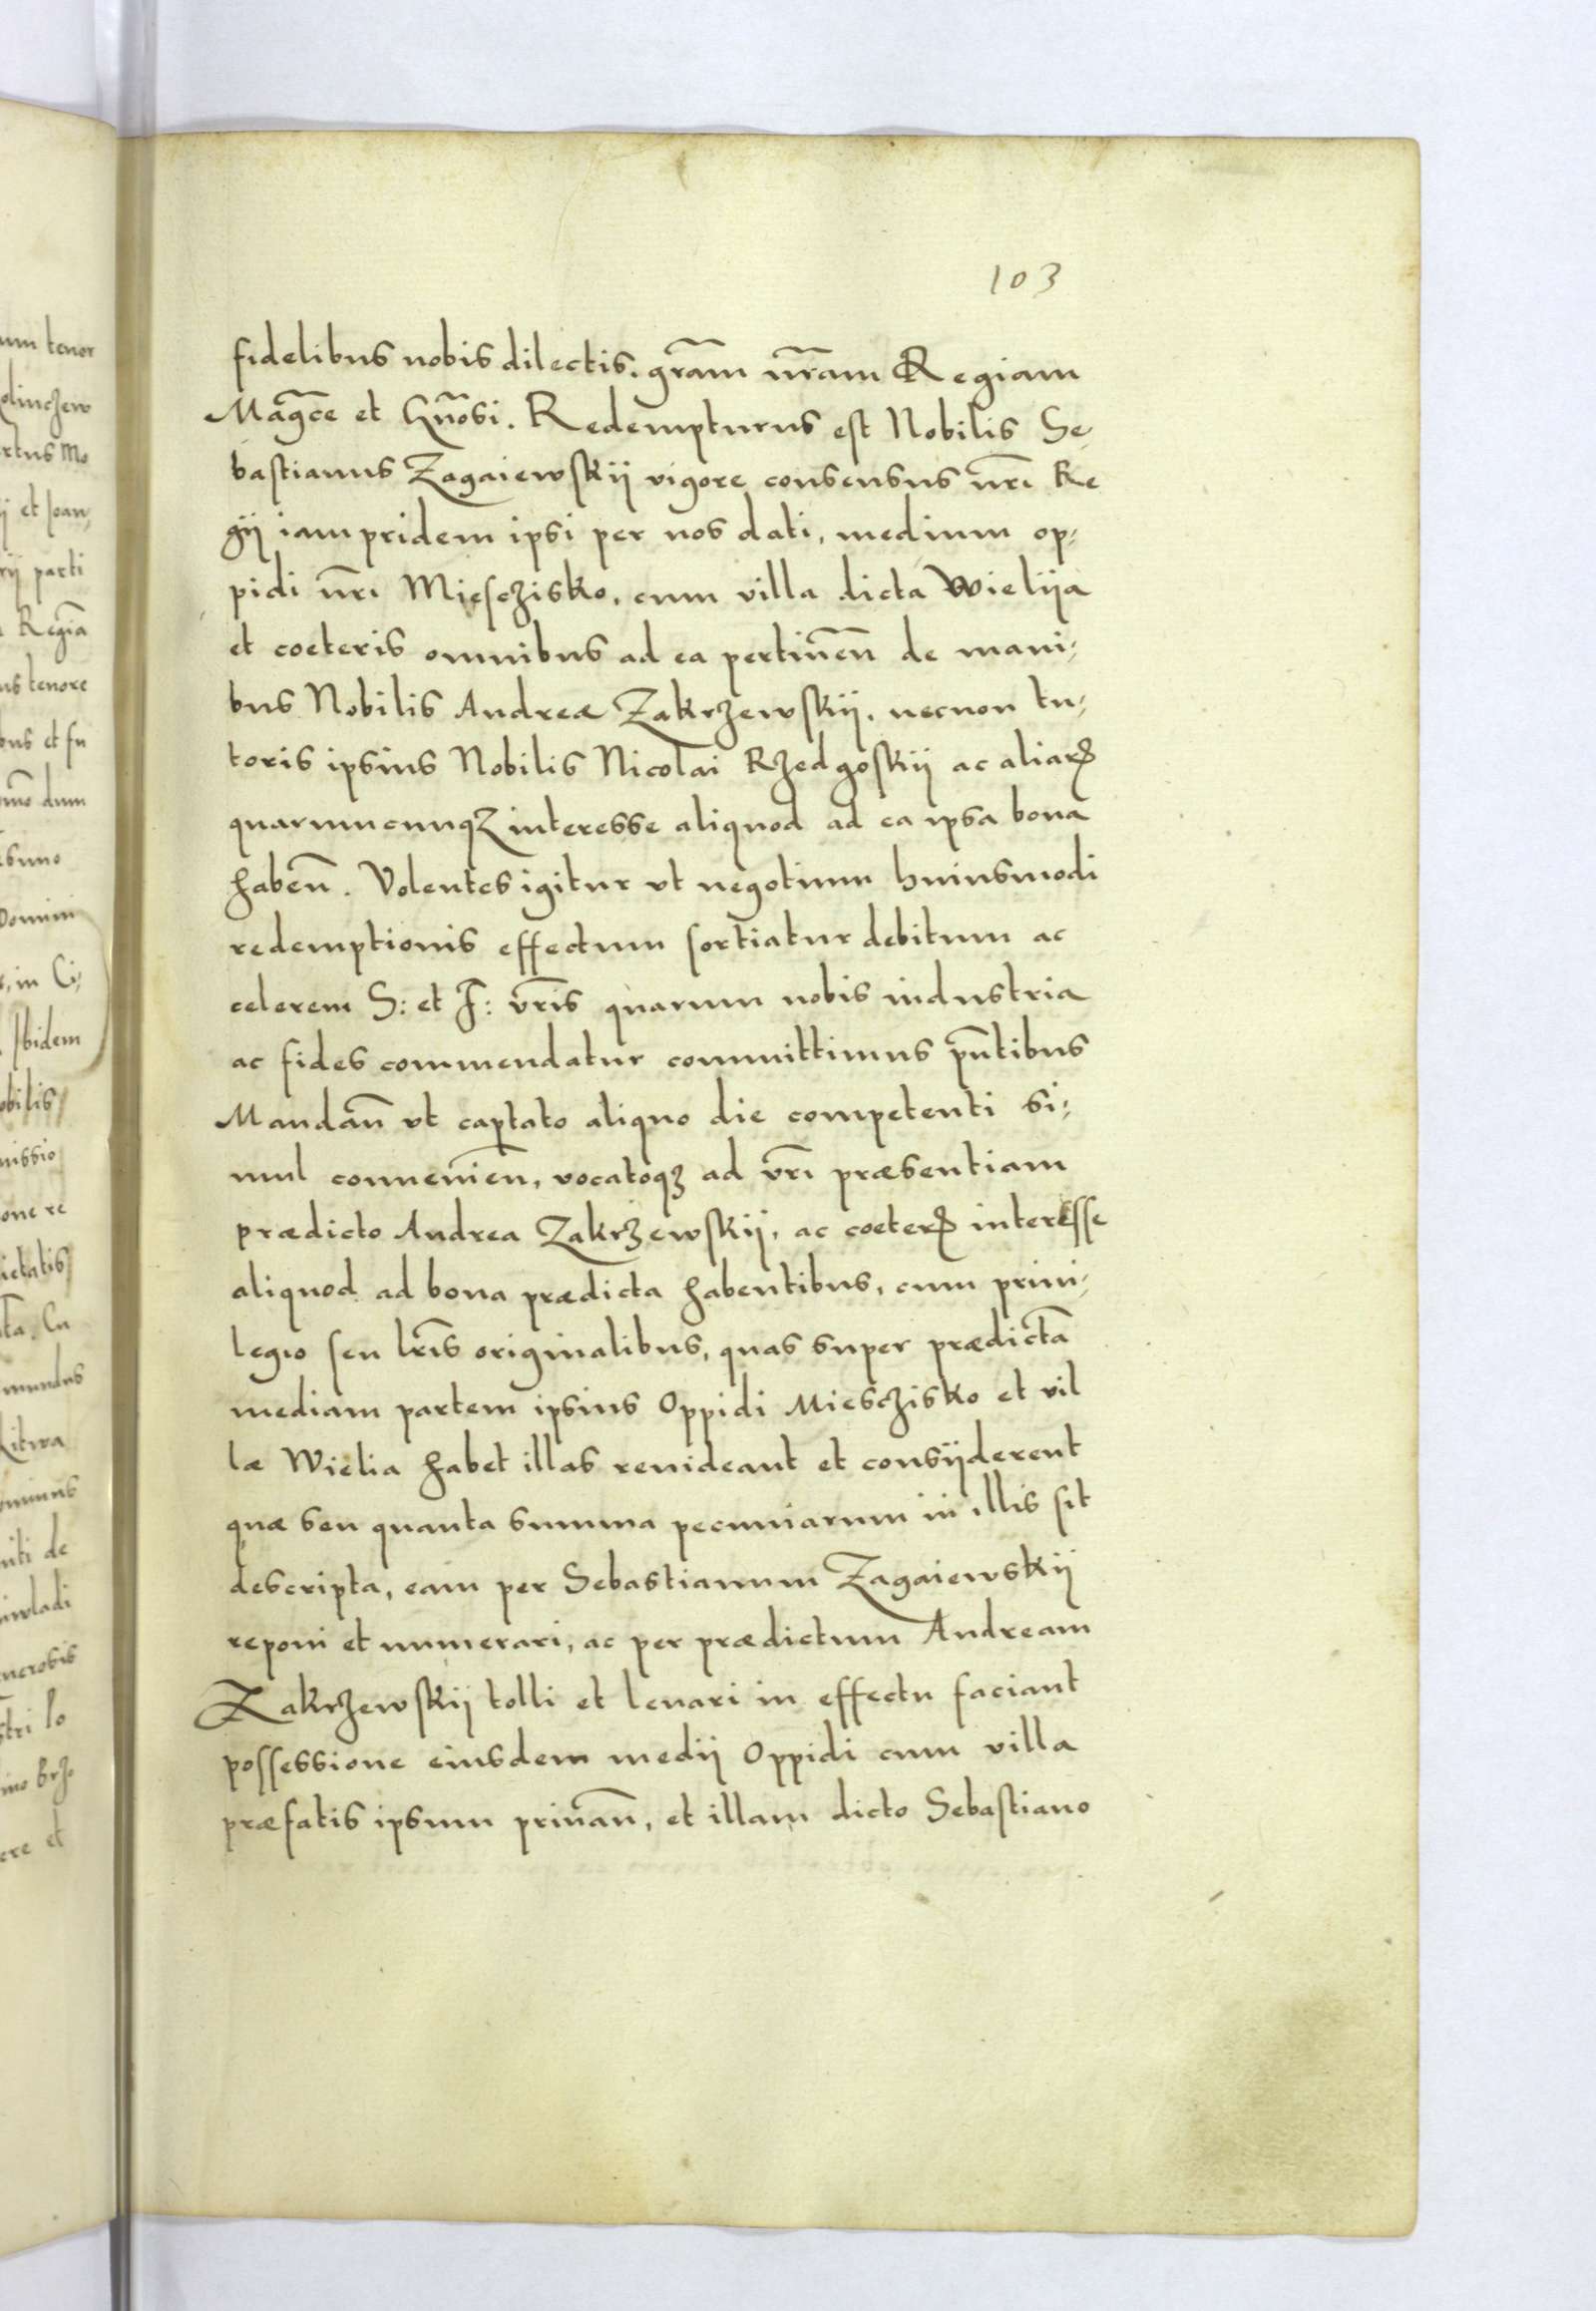 103
fidelibus nobis dilectis. gr̃am nr̃am Regiam
Magc̃e et Gñosi. Redempturus est Nobilis Se-
bastianus Zagaiewskij vigore consensus nr̃i Re
gij iampridem ipsi per nos dati, medium op-
pidi nr̃i Miesczisko, cum villa dicta Wielija
et coeteris omnibus ad ea pertineñ de mani-
bus Nobilis Andreæ Zakrzewskij, necnon tu-
toris ipsius Nobilis Nicolai Rzedgoskij ac aliaꝝ
quarumcunqꝫ interesse aliquod ad ea ipsa bona
habeñ. Volentes igitur vt negotium huiusmodi
redemptionis effectum sortiatur debitum ac
celerem S: et F: vr̃is quarum nobis industria
ac fides commendatur committimus pñtibus
Mandañ vt captato aliquo die competenti si-
mul conuenieñ, vocatoqꝫ ad vr̃i præsentiam
prædicto Andrea Zakrzewskij, ac coeteꝝ interesse
aliquod ad bona prædicta habentibus, cum priui-
legio seu lr̃is originalibus, quas super prædicta
mediam partem ipsius Oppidi Miesczisko et vil
læ Wielia habet illas reuideant et consijderent
quæ seu quanta summa pecuniarum in illis sit
descripta, eam per Sebastianum Zagaiewskij
reponi et numerari, ac per prædictum Andream
Zakrzewskij tolli et leuari in effectu faciant
possessione eiusdem medij Oppidi cum villa
præfatis ipsum priuañ, et illam dicto Sebastiano